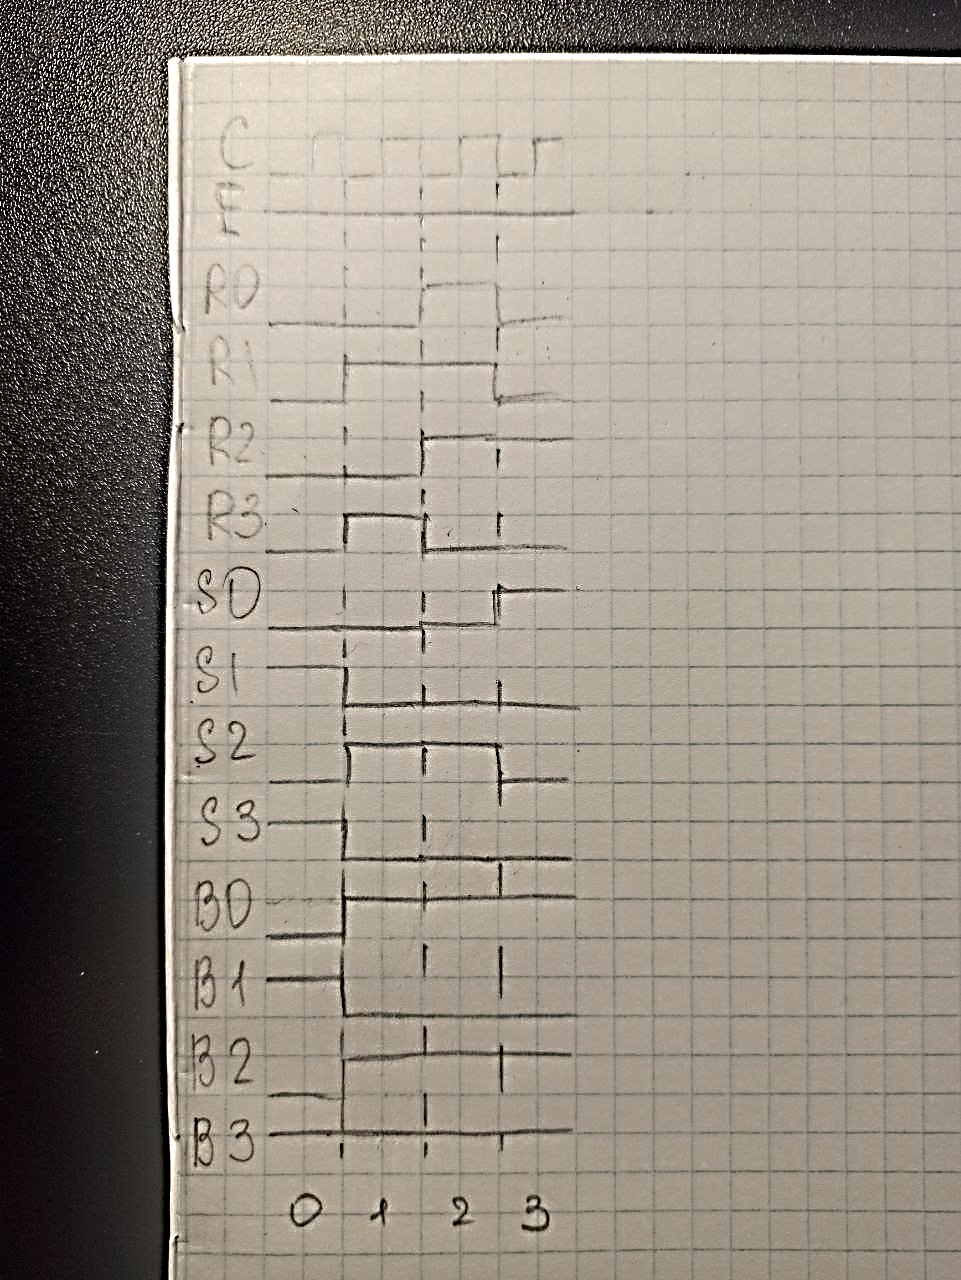 C
E
R0
R1
R2
R3
S0
S1
S2
S3
B0
B1
B2
B3
0 1 2 3